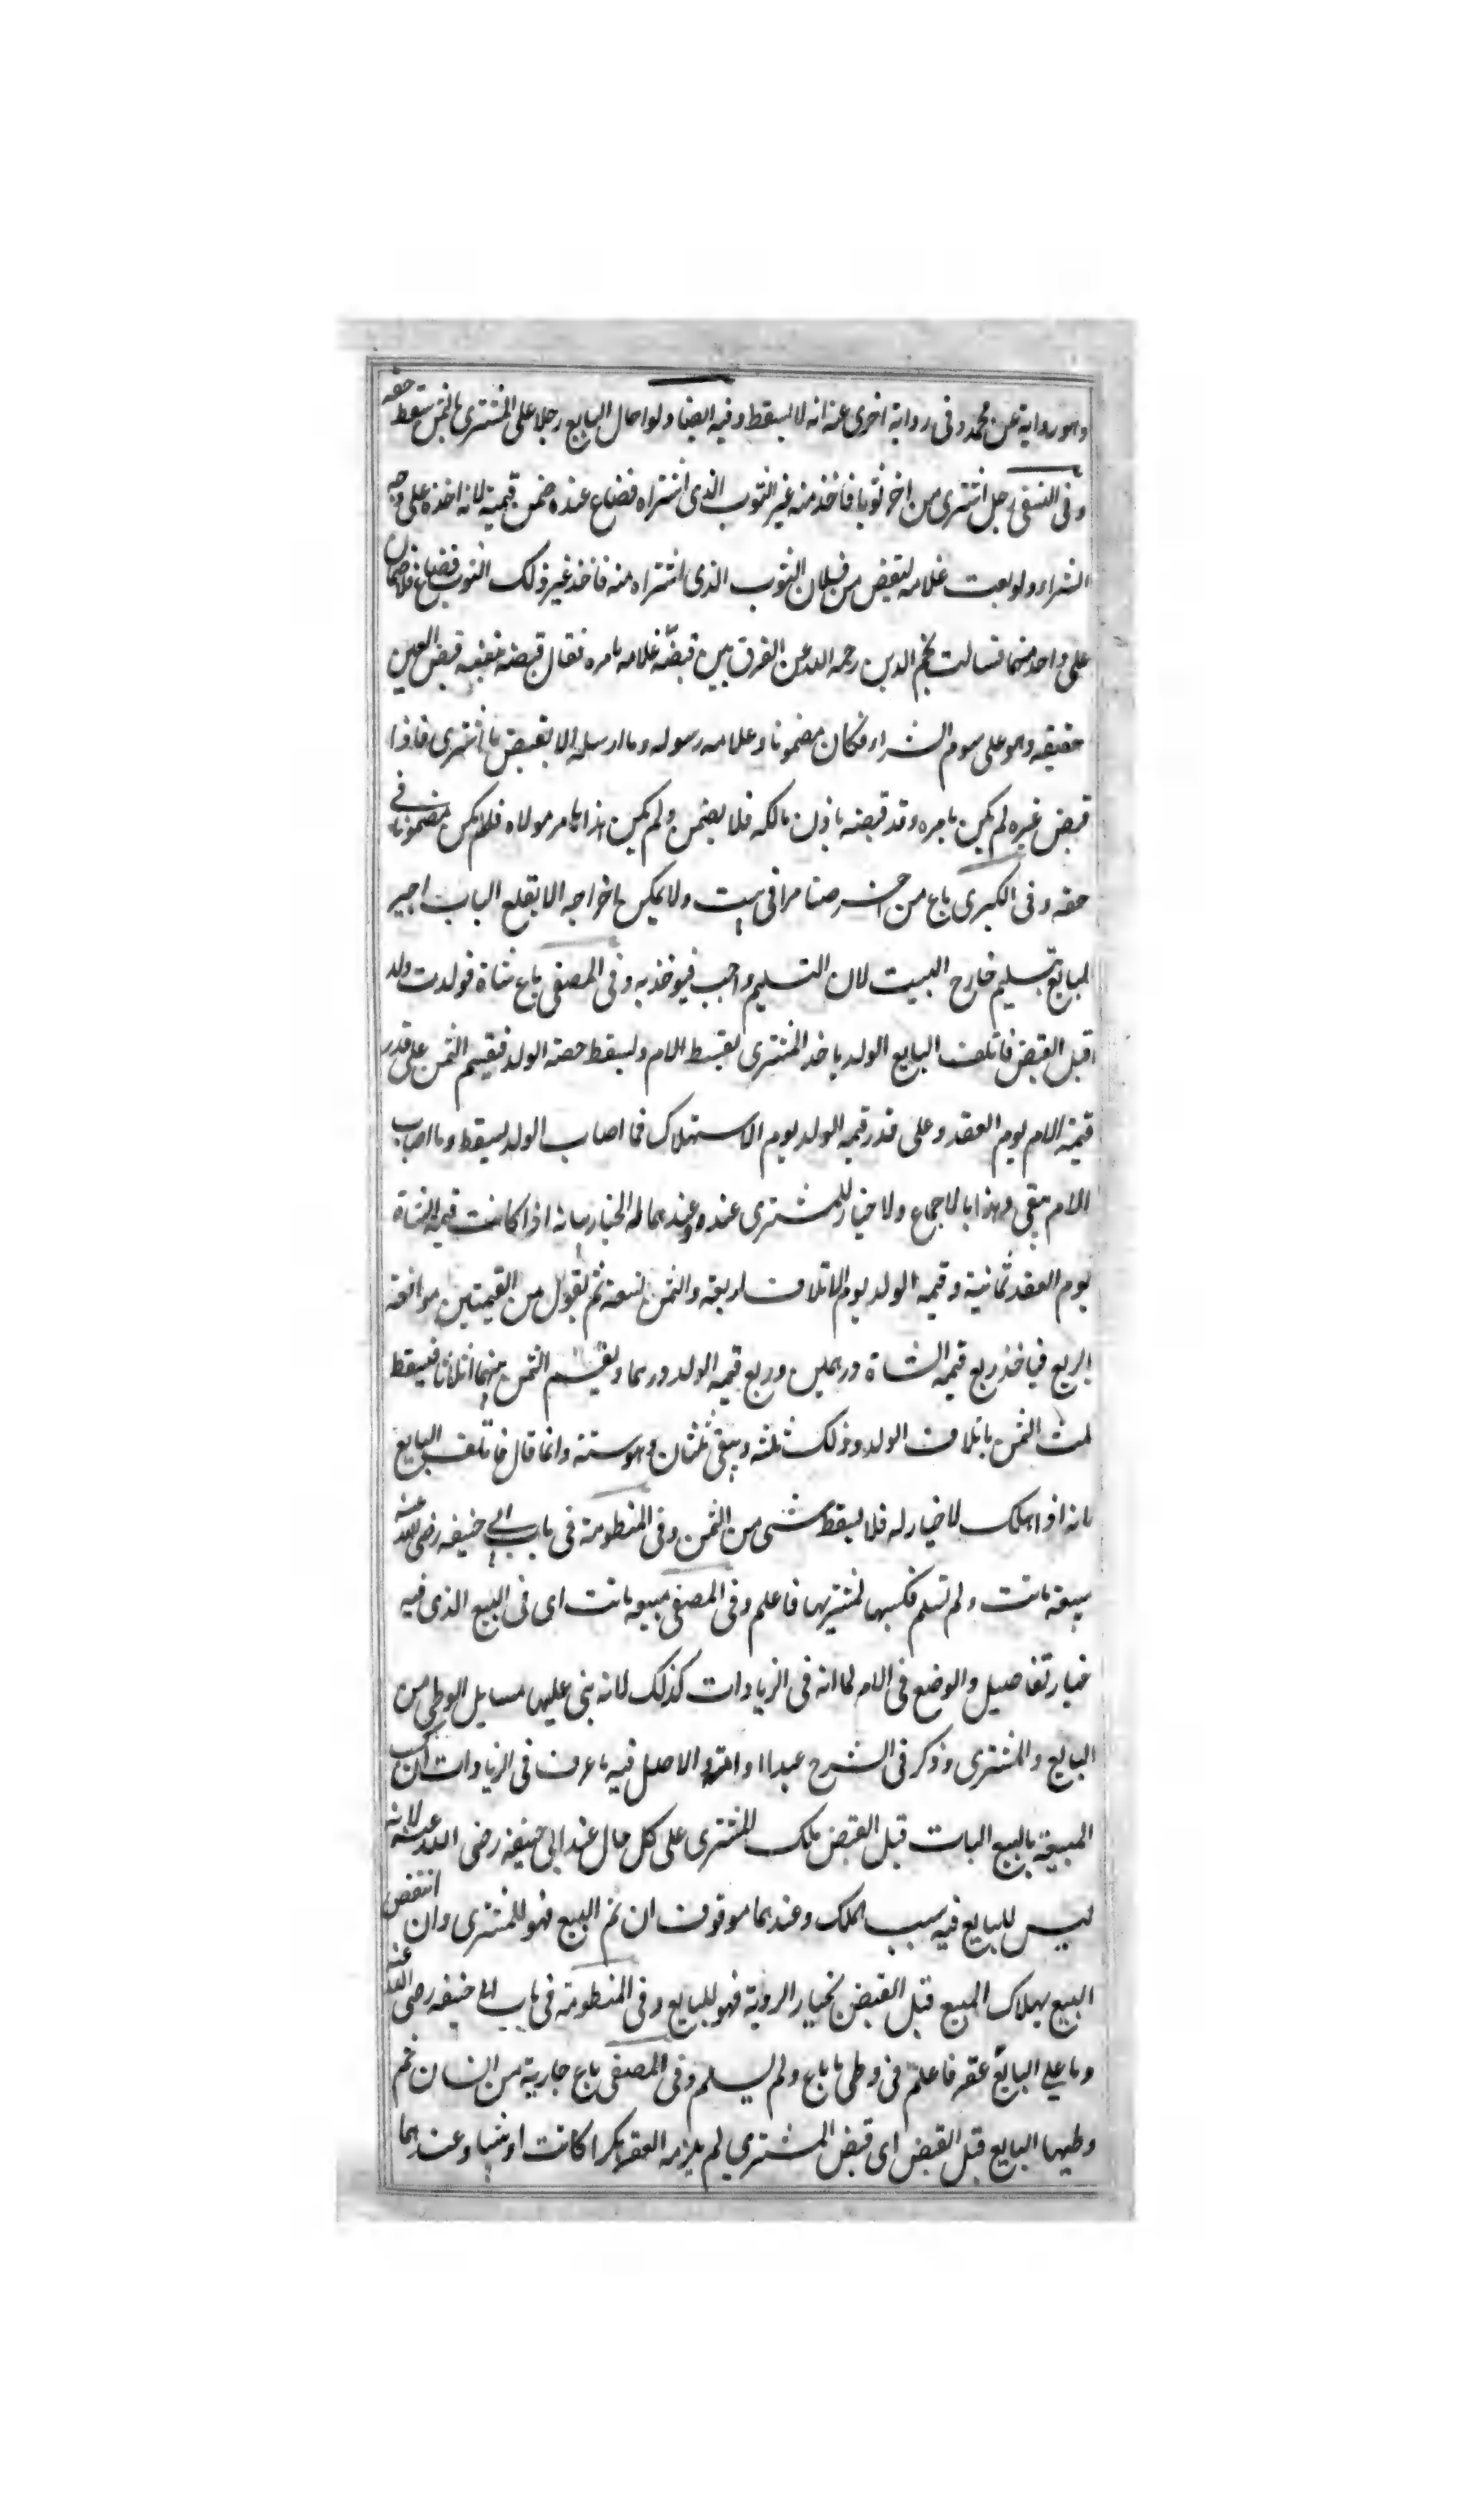 وهو رواية عن محمد وفى رواية اخرى عنه انه لا يسقط وفيه ايضا ولو احال البايع رجلا على المشترى بالثمن سقط حقه
وفى النسفى رجل اشترى من اخر ثوبا فاخذ منه غير الثوب الذى اشتراه فضاع عنده ضمن قيمته لانه اخذه على وجه
الشراء ولو بعث غلامه ليقبض من فلان الثوب الذى اشتراه منه فاخذ غير ذلك الثوب فضاع فلا ضمان
على واحد منهما فسالت نجم الدين رحمه الله عن الفرق بين قبضه غلامه بامره فقال قبضه بنفسه قبض العين
حقيقه وهو على سوم الشراء فكان مضمونا وغلامه رسوله وما ارسله الا بقبض ما اشترى فاذا
قبض غيره لم يكن بامره وقد قبضه باذن مالكه فلا يضمن ولم يكن هذا بامر مولاه فلم يكن مضمونا فى
حقه وفى الكبرى باع من اخر صنا مرا فى بيت ولا يمكن اخراجه الا بقلع الباب اجبر
البايع بتسليم خارج البيت لان التسليم واجب فيوخذ به وفى المصفى باع شاة فولدت ولد
اقبل القبض فاتلف البايع الولد ياخذ المشترى بقسط الام ويسقط حصة الولد فيقسم الثمن على قدر
قيمة الام يوم العقد وعلى قدر قيمه الولد يوم الاستهلاك فما اصاب الولد يسقط وما اصاب
الام يبقى وهذا بالاجماع ولا خيار للمشترى عنده وعندهما له الخيار بيانه اذا كانت قيمه الشاة
يوم العقد ثمانية وقيمه الولد يوم الاتلاف اربعة والثمن تسعة ثم نقول بين القيمتين موافقة
الربع فياخذ ربع قيمه الشاة درهمين وربع قيمه الولد درهما ويقسم الثمن بينهما اثلاثا فيسقط
ثلث الثمن باتلاف الولد وذلك ثلثه ويبقى ثلثان وهو ستة وانما قال فاتلف البايع
لانه اذا هلك لا خيار له فلا يسقط شى من الثمن وفى المنظومة فى باب ابي حنيفه رضى الله عنه
مبيعه ماتت ولم تسلم فكسبها لمشتريها فاعلم وفى المصفى مبيعه ماتت اى فى البيع الذى فيه
خيار تفاصيل والوضع فى الام لما انه فى الزيادات كذلك لانه بنى عليها مسايل الوطى من
البايع والمشترى وذكر فى الشرح عبدا او امة والاصل فيه ما عرف فى الزيادات ان كسب
المبيعة بالبيع البات قبل القبض ملك للمشترى على كل حال عند ابى حنيفة رضى الله عنه لانه
ليس للبايع فيه سبب الملك وعندهما موقوف ان تم البيع فهو للمشترى وان انتقض
البيع بهلاك المبيع قبل القبض بخيار الروية فهو للبايع وفى المنظومة فى باب ابى حنيفه رضى الله عنه
وما على البايع عقر فاعلم فى وطى ما باع ولم يسلم وفى المصفى باع جارية من انسان ثم
وطيها البايع قبل القبض اى قبض المشترى لم يلزمه العقر بكرا كانت او ثيبا وعندهما